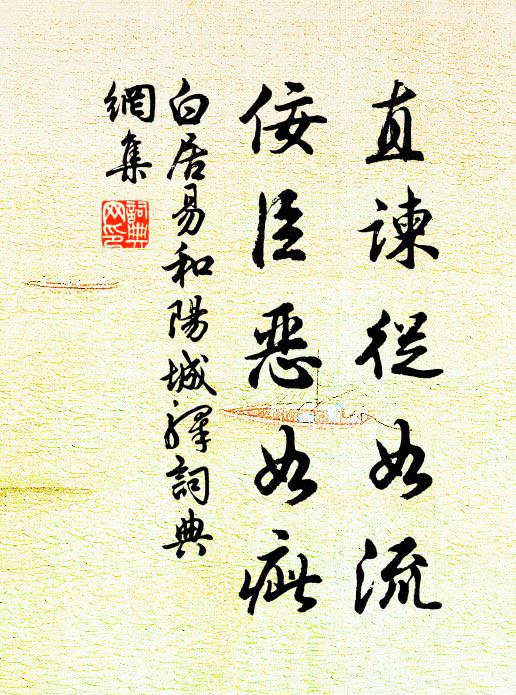 直諫從如流
佞臣惡如疵
白居易和陽城驛詞典
網集
詞典
网印